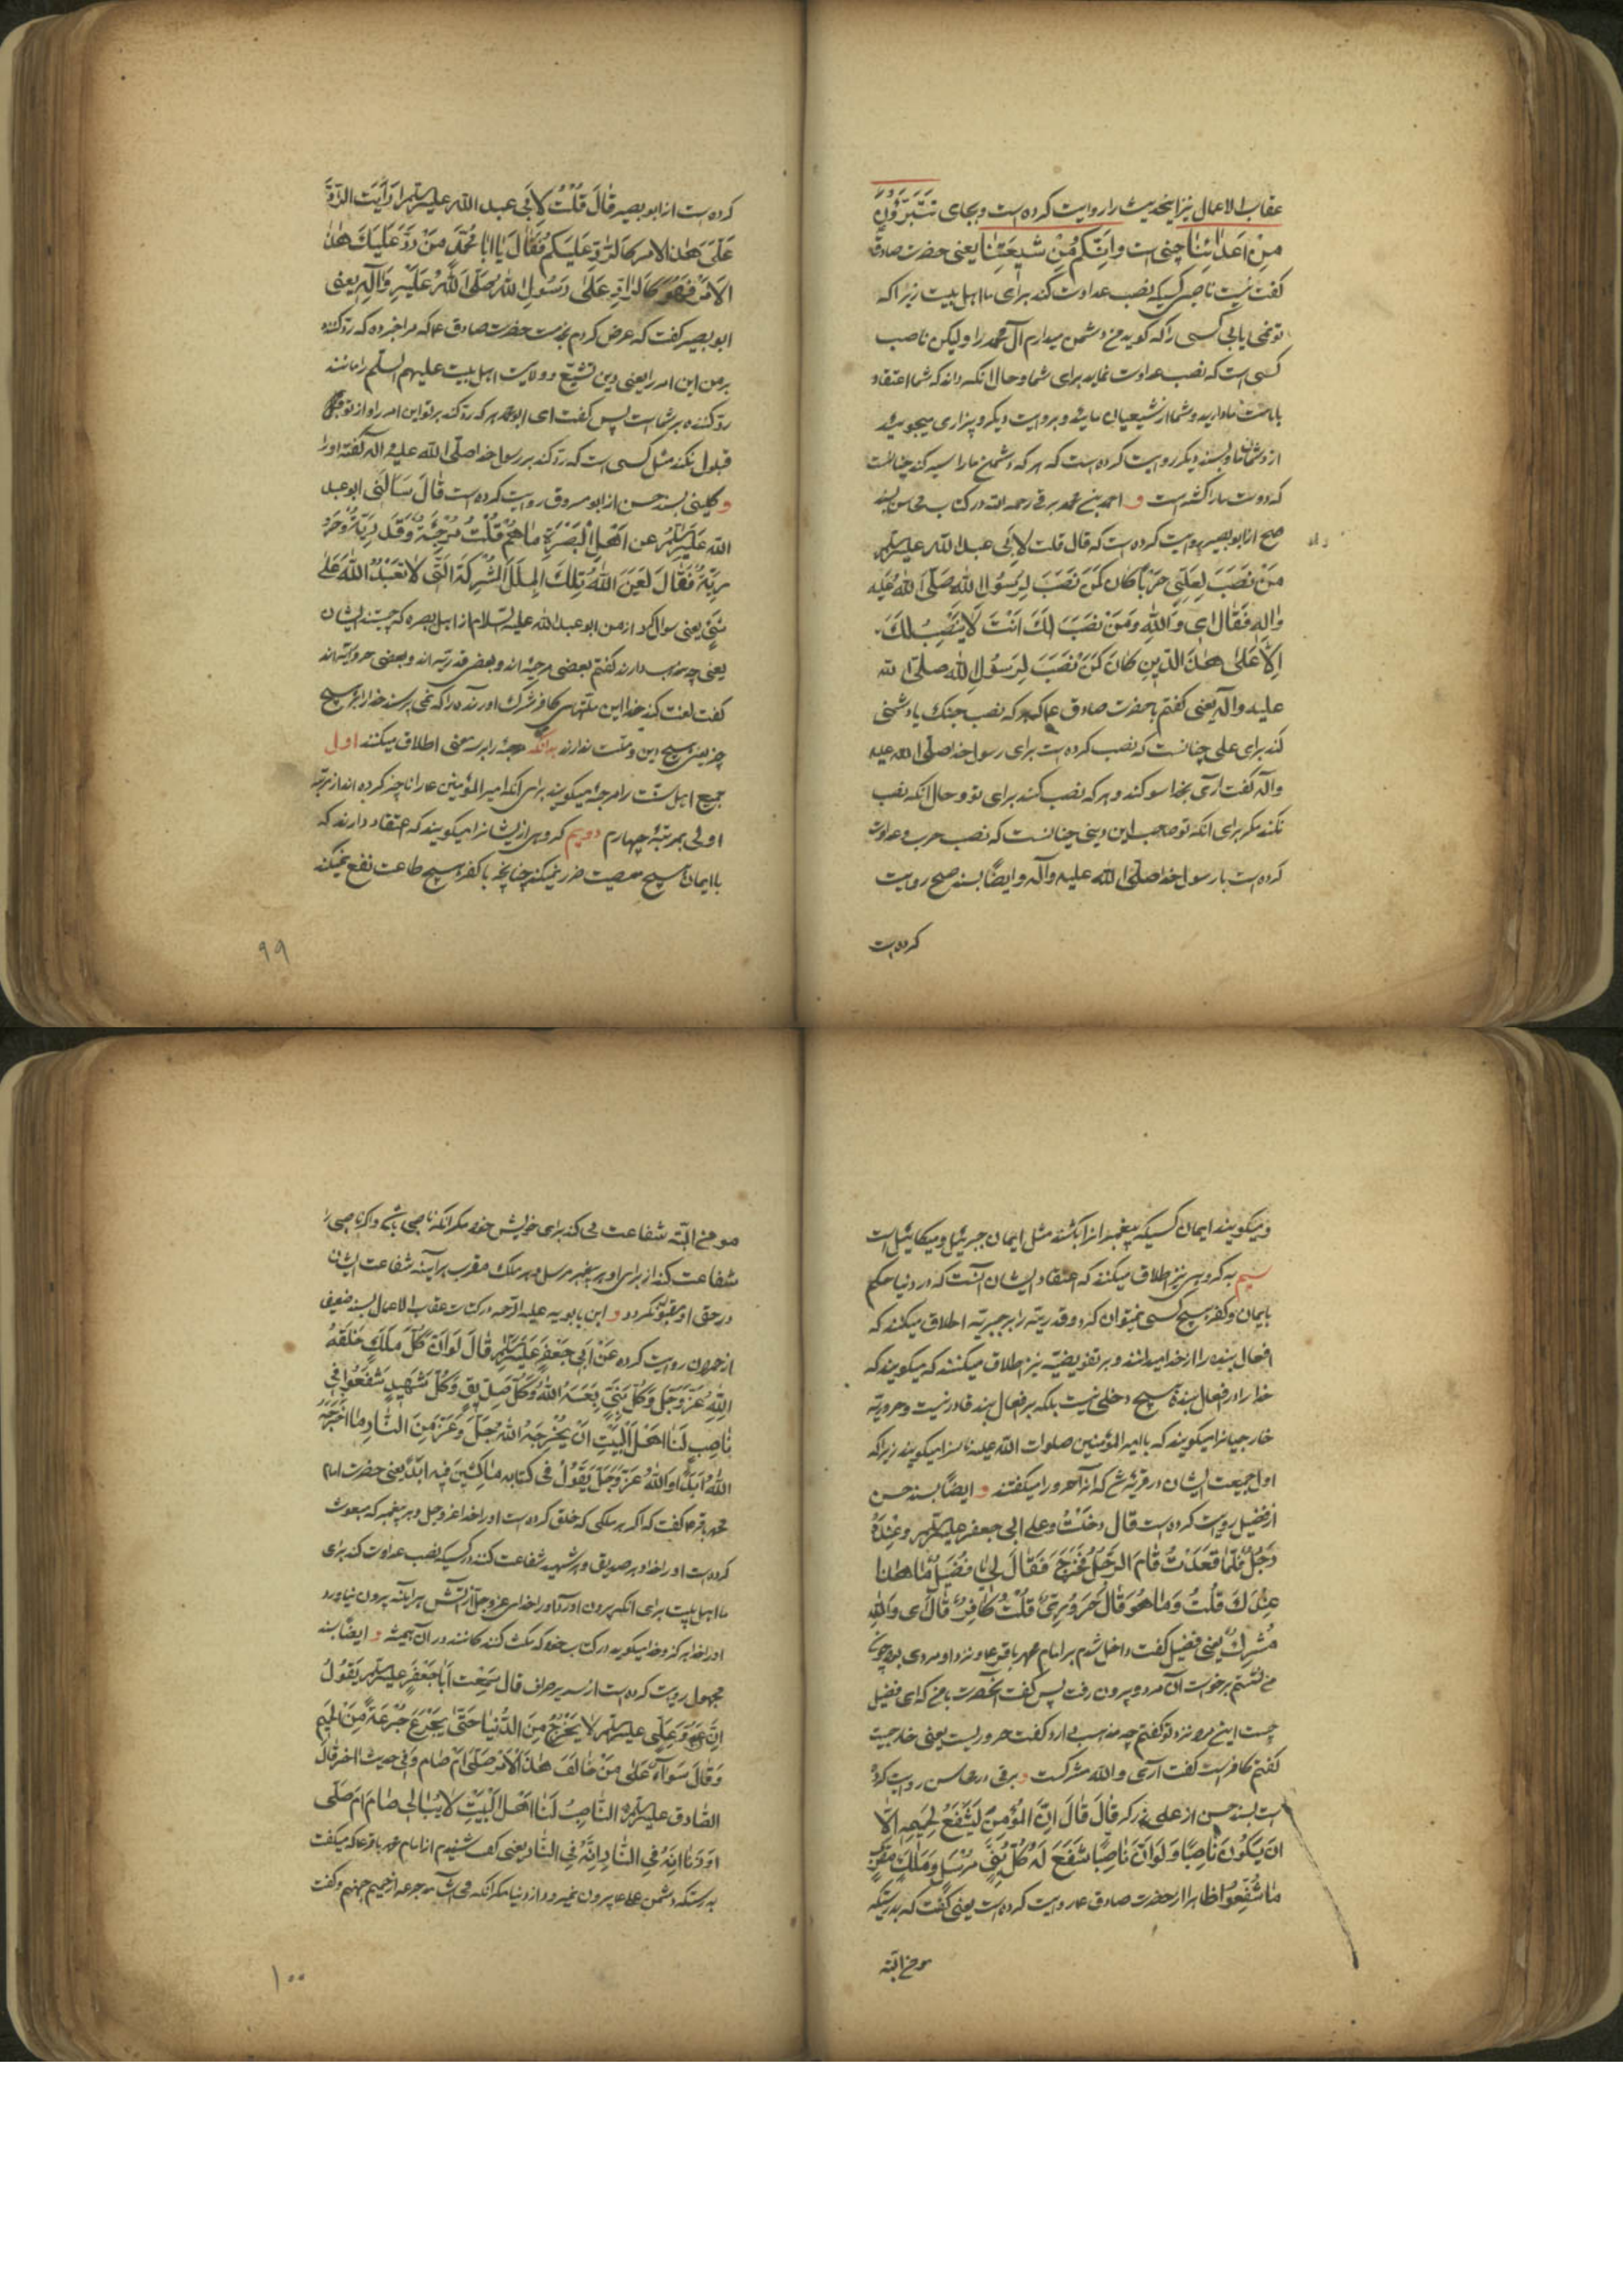 عقاب الاعمال نیز اینحدیث را روایت کرده است و بجای تتبرؤن
مِن اَعدائِنا چنین است وانّکم مِن شیعَتِنا یعنی حضرت صادق
گفت نیست ناصبی کسیکه نصب عداوت کند برای ما اهل بیت زیرا که
تو نمی یابی کسی را که گوید من دشمن میدارم آل محمد را ولیکن ناصب
کسی است که نصب عداوت نماید برای شما و حال انکه داند که شما اعتقاد
بامامت ما دارید و شما از شیعیان مائید و بروایت دیگر و بیزاری میجوئید
از دشمنان ما و بسند دیگر روایت کرده است که هر که دشمن ما را سیر کند چنانست
که دوست ما را کشته است و احمد بن محمد برقی رحمه الله در کتاب محاسن بسند
صحیح از ابو بصیر روایت کرده است که قال قلت لابی عبد الله علیه السلم
مَن نَصَبَ لِعَلِیٍّ حَرباً کان کَمَن نَصَبَ لِرَسُولِ الله صَلّی الله عَلیه
وآله فَقال ای وَالله وَمَن نَصَبَ لَکَ اَنتَ لا یَنصِبُ لَکَ
اِلّا عَلی هذَا الدّینِ کانَ کَمَن نَصَبَ لِرَسُولِ الله صلّی الله
علیه وآله یعنی گفتم بحضرت صادق ع که هر که نصب جنک یا دشمنی
کند برای علی چنانست که نصب کرده است برای رسول خدا صلی الله علیه
وآله گفت آری بخدا سوکند و هر که نصب کند برای تو و حال انکه نصب
نکند مگر برای انکه تو صاحب این دینی چنانست که نصب حرب و عداوت
کرده است با رسول خدا صلّی الله علیه وآله وایضاً بسند صحیح روایت
کرده است
کرده است از ابو بصیر قالَ قُلتُ لابی عبد الله علیه السلم اَرَاَیتَ الرّادَّ
عَلَیَّ هذا الامر کَالرّادِّ عَلَیکم فَقالَ یا ابا مُحَمَّد مَن رَدَّ عَلَیکَ هذا
الاَمر فَهُو کَالرّادِّ عَلی رَسُولِ الله صَلّی الله عَلَیهِ وَآلِهِ یعنی
ابو بصیر گفت که عرض کردم بخدمت حضرت صادق ع که مرا خبر ده که ردّ کننده
بر من این امر را یعنی دین تشیّع و ولایت اهل بیت علیهم السلم را مانند
ردّ کننده بر شما است پس گفت ای ابو محمد هر که ردّ کند بر تو این امر را و از تو
قبول نکند مثل کسی است که ردّ کند بر رسول خدا صلّی الله علیه وآله گفته او را
و کلینی بسند حسن از ابو مسروق روایت کرده است قالَ سَالَنی ابو عبد
الله عَلَیه السلم عن اَهلِ البَصرَةِ ما هُم قُلتُ مُرجِئَةٌ وَقَدَرِیَّةٌ وَحَرُو
رِیَّةٌ فَقالَ لَعَنَ اللهُ تِلکَ المِلَلَ المُشرِکَةَ الَّتی لا تَعبُدُ اللهَ عَلی
شَیءٍ یعنی سؤال کرد از من ابو عبد الله علیه السلام از اهل بصره که چیستند ایشان
یعنی چه مذهب دارند گفتم بعضی مرجئه اند و بعضی قدریّه اند و بعضی حروریّه اند
گفت لعنت کند خدا این ملتهای کافر مشرک آورنده را که نمی پرسند خدا را بر هیچ
چیز یعنی هیچ دین و ملت ندارند بدانکه مرجئه را بر سه معنی اطلاق میکنند اول
جمیع اهل سنّت را مرجئه میگویند برای انکه امیر المؤمنین ع را تاخیر کرده اند از مرتبه
اولی بمرتبه چهارم دویم گروهی از ایشان را میگویند که اعتقاد دارند که
با ایمان هیچ معصیت ضرر نمیکند چنانچه با کفر هیچ طاعت نفع نمیکند
۹۹
ومیگویند ایمان کسیکه پیغمبران را بکشد مثل ایمان جبرئیل و میکائیل است
سیم به گروهی نیز اطلاق میکنند که اعتقاد ایشان آنست که در دنیا حکم
بایمان و کفر هیچ کسی نمیتوان کرد و قدریّه را بر جبریّه اطلاق میکنند که
افعال بنده را از خدا میدانند و بر تفویضیّه نیز اطلاق میکنند که میگویند که
خدا را در افعال بنده هیچ دخلی نیست بلکه بر افعال بنده قادر نیست و حروریّه
خارجیان را میگویند که بامیر المؤمنین صلوات الله علیه ناسزا میگویند زیرا که
اول جمعیت ایشان در قریه شد که آنرا حرورا میگفتند و ایضاً بسند حسن
از فضیل روایت کرده است قال دخَلتُ علی ابی جعفر علیه السلم وعِندَهُ
رَجُلٌ فَلَمّا قَعَدتُ قامَ الرَّجُلُ فَخَرَجَ فَقالَ لی یا فُضَیلُ ما هذا
عِندَکَ قُلتُ وَما هُوَ قالَ حَرُورِیٌّ قُلتُ کافِرٌ قالَ ای والله
مُشرِکٌ یعنی فضیل گفت داخل شدم بر امام محمد باقر ع و نزد او مردی بود چون
من نشستم برخاست آن مرد و بیرون رفت پس گفت آنحضرت بامن که ای فضیل
چیست این مرد نزد تو گفتم چه مذهب دارد گفت حروریست یعنی خارجیست
گفتم کافر است گفت آری والله مشرکست و برقی در محاسن روایت کرده
است بسند حسن از علی قالَ قالَ اِنَّ المُؤمِنَ لَیَشفَعُ لِحَمیمِهِ اِلّا
اَن یَکُونَ ناصِباً وَلَو اَنَّ ناصِباً شَفَعَ لَهُ کُلُّ نَبِیٍّ مُرسَلٍ وَمَلَکٍ مُقَرَّبٍ
ما شُفِّعُوا ظاهرا از حضرت صادق ع روایت کرده است یعنی گفت که بدرستیکه
مومن البته
مومن البتّه شفاعت می کند برای خویش خود مکر انکه ناصبی باشد و اکر ناصبی را
شفاعت کند از برای او هر پیغمبر مرسل و هر ملک مقرب هر آینه شفاعت ایشان
در حق او مقبول نکردد و ابن بابویه علیه الرّحمه در کتاب عقاب الاعمال بسند ضعیف
از حمران روایت کرده عَن اَبی جَعفَرٍ عَلَیه السلم قالَ لَو اَنَّ کُلَّ مَلَکٍ خَلَقَهُ
اللهُ عَزَّ وَجَلَّ وَکُلَّ نَبِیٍّ بَعَثَهُ اللهُ وَکُلَّ صِدّیقٍ وَکُلَّ شَهیدٍ شَفَعُوا فی
ناصِبٍ لَنا اَهلَ البَیتِ اَن یُخرِجَهُ اللهُ جَلَّ وَعَزَّ مِنَ النّارِ ما اَخرَجَهُ
اللهُ اَبَداً وَاللهُ عَزَّ وَجَلَّ یَقُولُ فی کتابه ماکِثینَ فیه ابَداً یعنی حضرت امام
محمد باقر ع گفت که اکر هر ملکی که خلق کرده است او را خدا عزوجل و هر پیغمبر که مبعوث
کرده است او را خدا و هر صدیق و هر شهید شفاعت کنند در کسیکه نصب عداوت کند برای
ما اهل بیت برای انکه بیرون آورد او را خدای عزوجل از آتش هر آینه بیرون نیاورد
او را خدا هرگز و خدا میگوید در کتاب خود که مکث کننده کانند در آن همیشه و ایضاً بسند
مجهول روایت کرده است از سدیر صراف قال سَمِعتُ اَبا جَعفَرٍ علیه السلم یَقُولُ
اِنَّ عَدُوَّ عَلِیٍّ علیه السلم لا یَخرُجُ مِنَ الدُّنیا حَتّی یَجرَعَ جُرعَةً مِنَ الحَمیمِ
وَقالَ سَواءٌ عَلی مَن خالَفَ هذَا الاَمرَ صَلّی اَم صام وَفی حدیث اخر قالَ
الصّادق علیه السلم النّاصِبُ لَنا اَهلَ البَیتِ لا یُبالی صامَ اَم صَلّی
اَو زَنا اِنَّهُ فِی النّارِ اِنَّهُ فِی النّار یعنی گفت شنیدم از امام محمد باقر ع که میکفت
بدرستیکه دشمن علی ع بیرون نمیرود از دنیا مکر انکه می آشامد جرعه از حمیم جهنم و گفت
۱۰۰